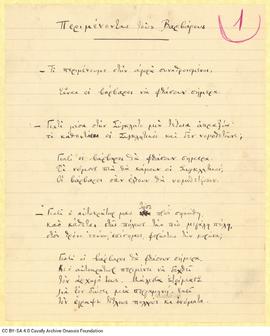 Περιμένοντας τους Βαρβάρους
1
— Τι περιμένουμε στην αγορά συναθροισμένοι;
Είναι οι βάρβαροι να φθάσουν σήμερα.
— Γιατί μέσα στην Σύγκλητο μιά τέτοια απραξία;
Τι κάθοντ' οι Συγκλητικοί και δεν νομοθετούνε;
Γιατί οι βάρβαροι θα φθάσουν σήμερα.
Τι νόμους πια θα κάμουν οι Συγκλητικοί;
Οι βάρβαροι σαν έλθουν θα νομοθετήσουν.
— Γιατί ο αυτοκράτωρ μας τόσο πρωί σηκώθη,
και κάθεται στης πόλεως την πιο μεγάλη πύλη
στον θρόνο επάνω, επίσημος, φορώντας την κορώνα;
Γιατί οι βάρβαροι θα φθάσουν σήμερα.
Κι ο αυτοκράτωρ περιμένει να δεχθεί
τον αρχηγό τους. Μάλιστα ετοίμασε
για να τον δώσει μια περγαμηνή. Εκεί
τον έγραψε τίτλους πολλούς κι ονόματα.
CC BY-SA 4.0 Cavafy Archive Onassis Foundation